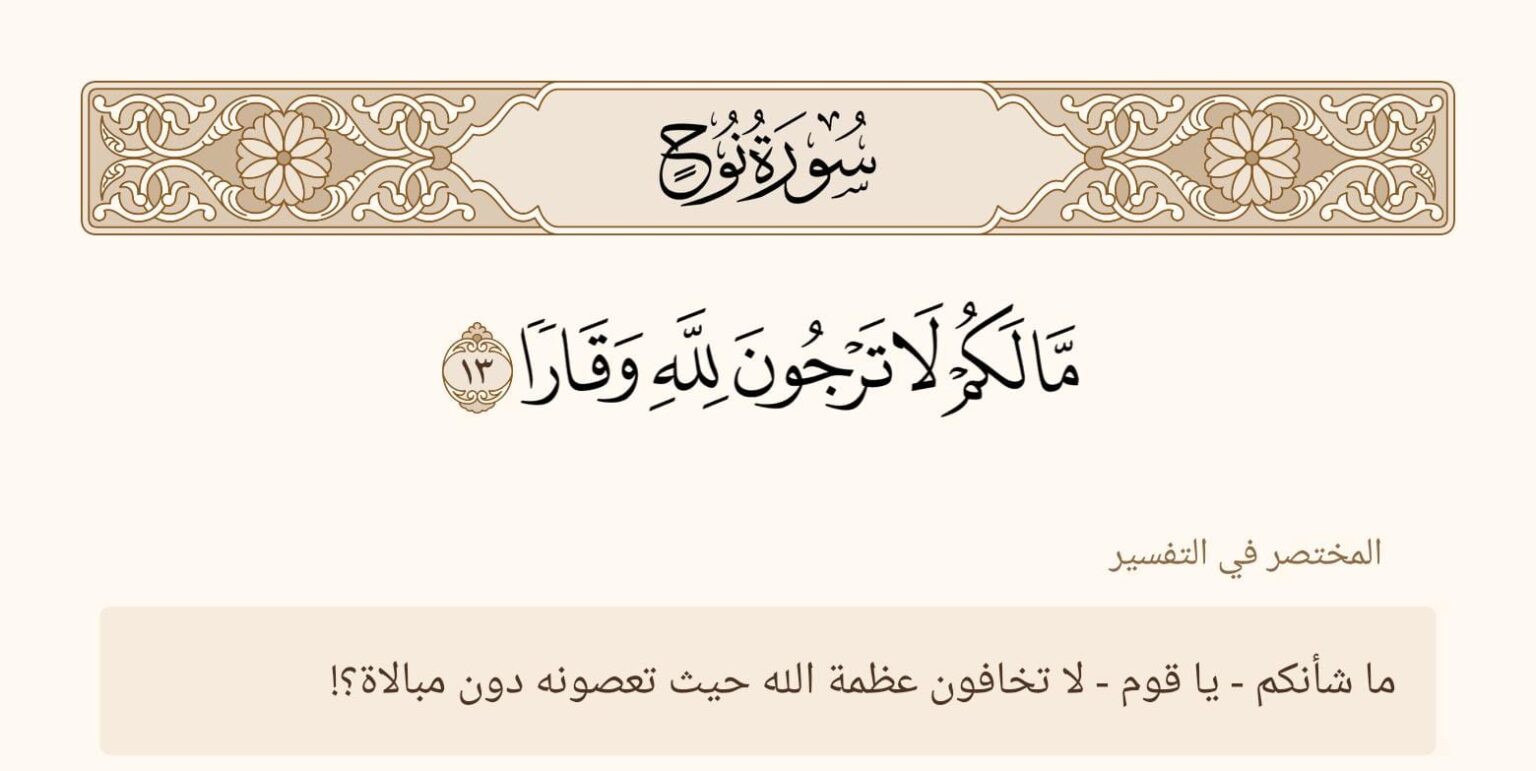 سُورَةُ نُوحٍ
مَّا لَكُمْ لَا تَرْجُونَ لِلَّهِ وَقَارًا ١٣
المختصر في التفسير
ما شأنكم - يا قوم - لا تخافون عظمة الله حيث تعصونه دون مبالاة؟!